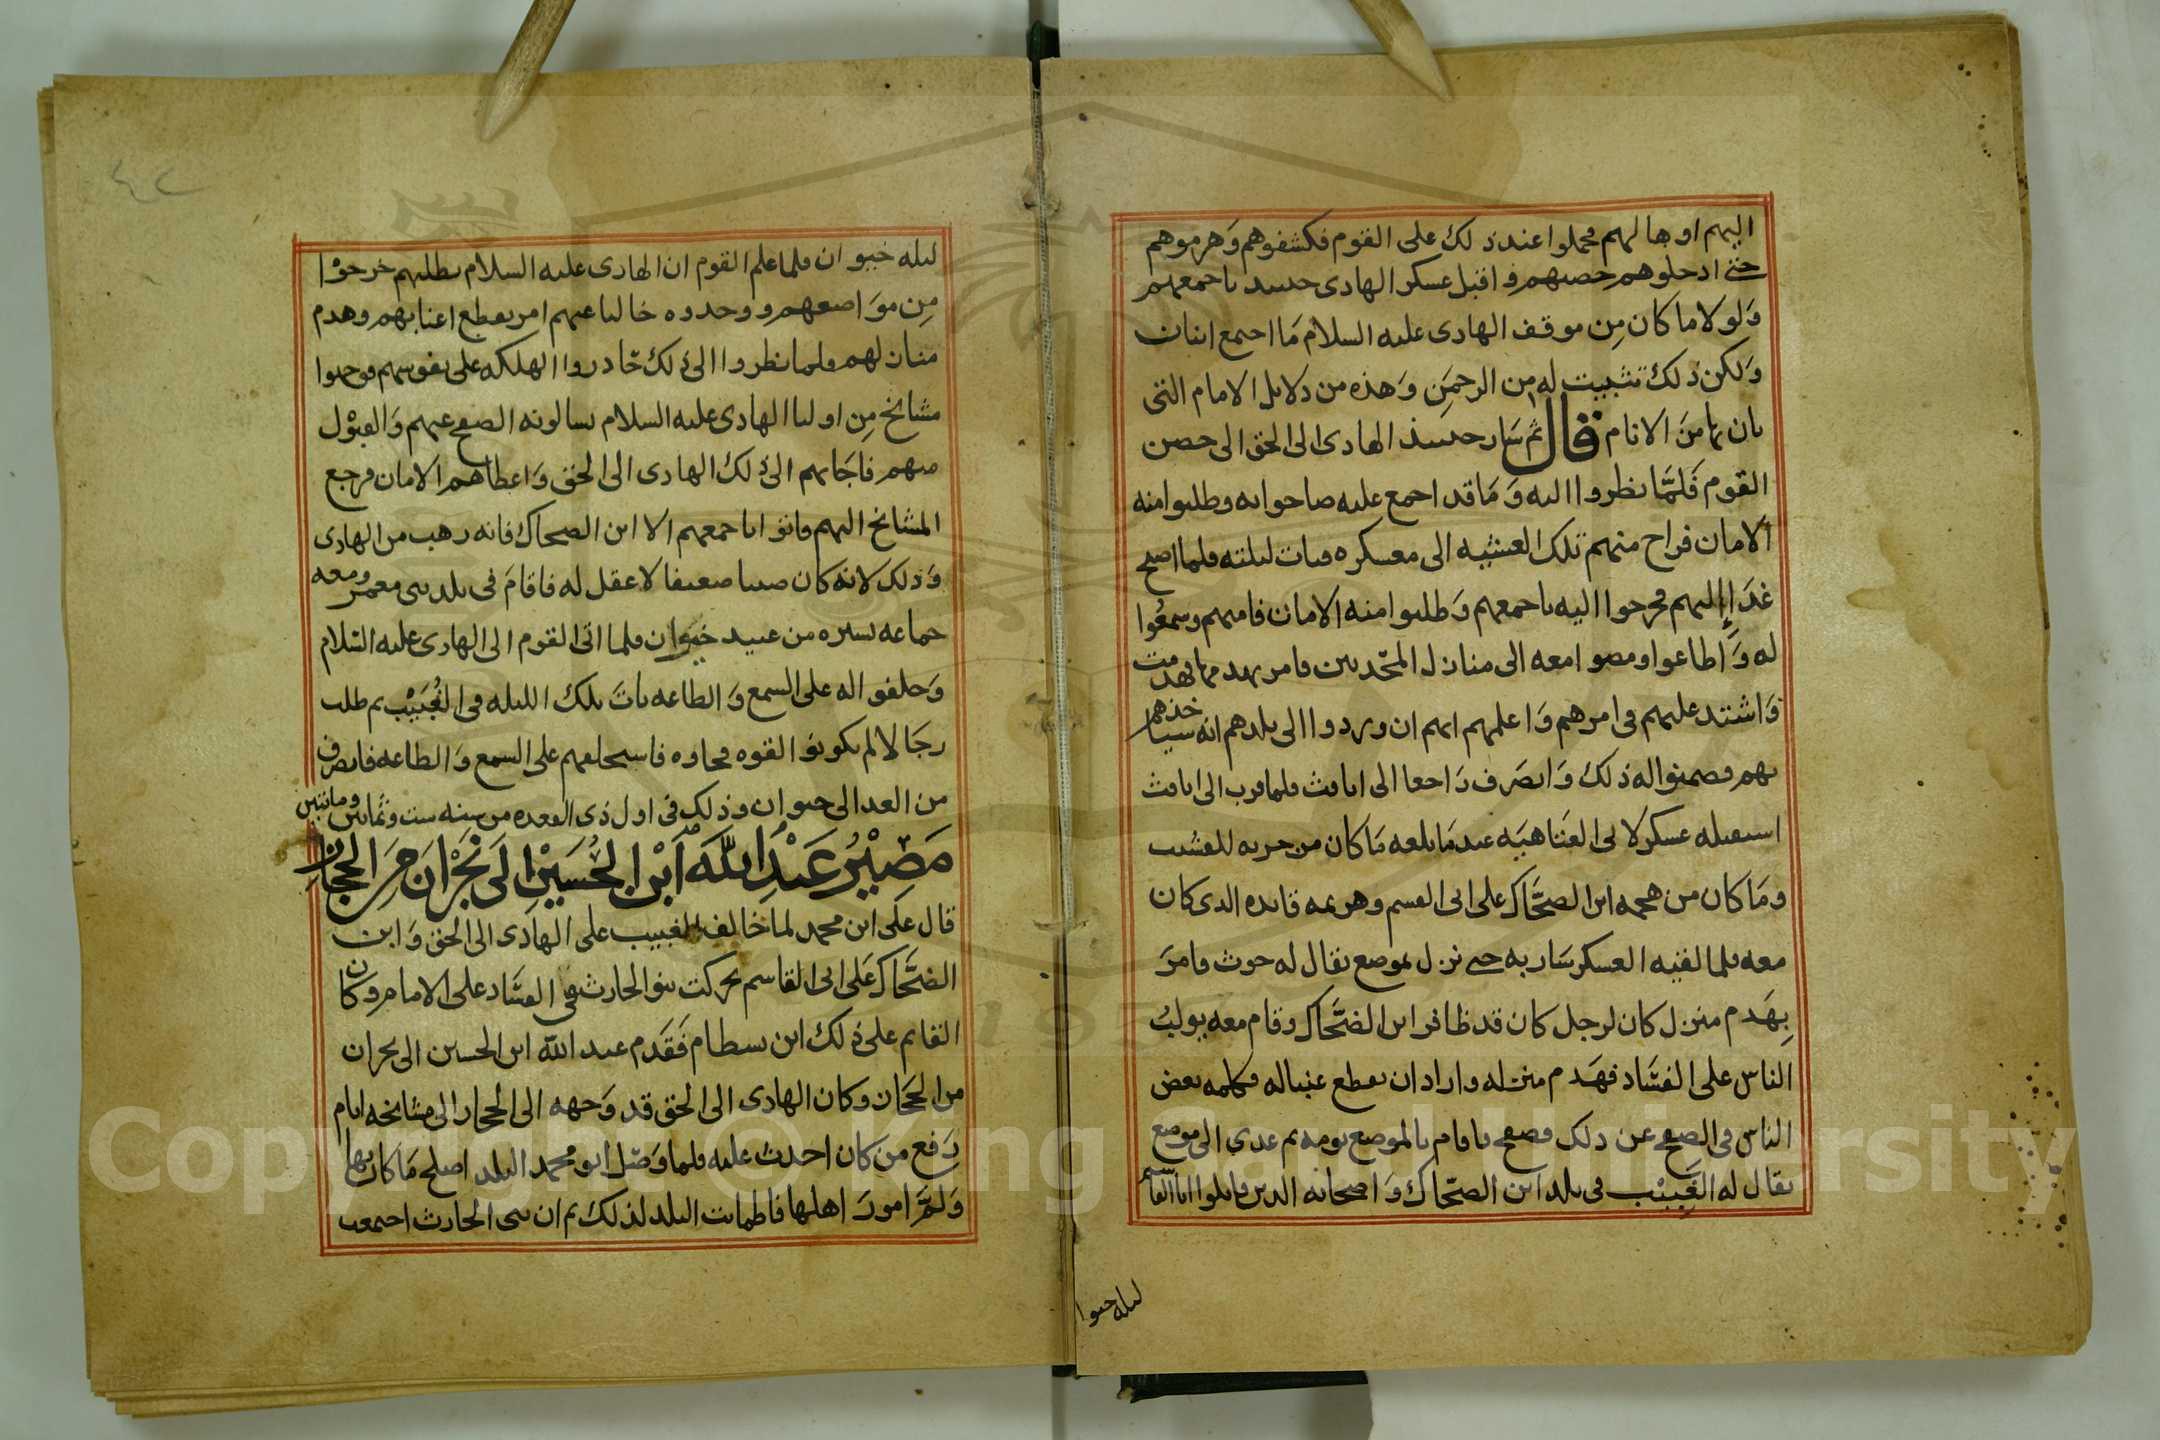 اليهم اوهالهم فحملوا عند ذلك على القوم فكشفوهم وهزموهم
حتى ادخلوهم حصنهم واقبل عسكر الهادى حينئذ باجمعهم
ولولا ما كان من موقف الهادى عليه السلام ما اجتمع اثنان
ولكن ذلك تثبيت له من الرحمن وهذه من دلايل الامام التى
بان بها من الانام قال ثم سار حينئذ الهادى الى الحق الى حصن
القوم فلما نظروا اليه وما قد اجمع عليه صاحوا به وطلبوا منه
الامان فراح منهم تلك العشيه الى معسكره فبات ليلته فلما اصبح
غدا اليهم فخرجوا اليه باجمعهم وطلبوا منه الامان فامنهم وسمعوا
له واطاعوا ومضوا معه الى منازل المحدثين فامر بهدمها فهدمت
واشتد عليهم فى امرهم واعلمهم انهم ان وردوا الى بلدهم انه سياخذهم
بهم فضمنوا له ذلك وانصرف راجعا الى اثافث فلما قرب الى اثافث
استقبله عسكر لابى العتاهيه عند ما بلغه ما كان من حربه
وما كان من هجمه ابن الضحاك على ابى القسم وهزيمه قائده الذى كان
معه فلما لقيه العسكر سار به حتى نزل بموضع يقال له حوث فامر
بهدم منزل كان لرجل كان قد ظافر ابن الضحاك وقام معه يولب
الناس على الفساد فهدم منزله واراد ان يقطع عنبا له فكلمه بعض
الناس فى الصفح عن ذلك فصفح فاقام بالموضع يومه ثم غدى الى موضع
يقال له الغبيب فى بلد ابن الضحاك واصحابه الذين قاتلوا ابا القاسم
ليله خيوان
ليله خيوان فلما علم القوم ان الهادى عليه السلام يطلبهم خرجوا
من مواضعهم ووجدوه خاليا عنهم امر بقطع اعنابهم وهدم
منازلهم ولما نظروا الى ذلك خادروا الهلكه على نفوسهم فوجهوا
مشائخ من اوليا الهادى عليه السلام يسالونه الصفح عنهم والقبول
منهم فاجابهم الى ذلك الهادى الى الحق واعطاهم الامان فرجع
المشائخ اليهم فاتوا باجمعهم الا ابن الضحاك فانه رهب من الهادى
وذلك لانه كان صبيا ضعيفا لا عقل له فاقام فى بلد بنى معمر ومعه
جماعه يسيره من عبيد خيوان فلما اتى القوم الى الهادى عليه السلام
وحلفوا له على السمع والطاعه بات تلك الليله فى الغبيب ثم طلب
رجالا لم يكونوا القوه فجاوه فاستحلفهم على السمع والطاعه فانصرف
من الغد الى خيوان وذلك فى اول ذى القعده من سنه ست وثمانين ومائتين
مصير عبد الله ابن الحسين الى نجران من الحجاز
قال على ابن محمد لما خالف الغبيب على الهادى الى الحق وابن
الضحاك على ابى القاسم تحركت بنو الحارث فى الفساد على الامام وكان
القايم على ذلك ابن بسطام فقدم عبد الله ابن الحسين الى نجران
من الحجاز وكان الهادى الى الحق قد وجهه الى الحجاز الى مشائخه ايام
رفع من كان احدث عليه فلما وصل ابو محمد البلد اصلح ما كان بها
ولم امور اهلها فاطمانت البلد لذلك ثم ان بنى الحارث اجتمعت